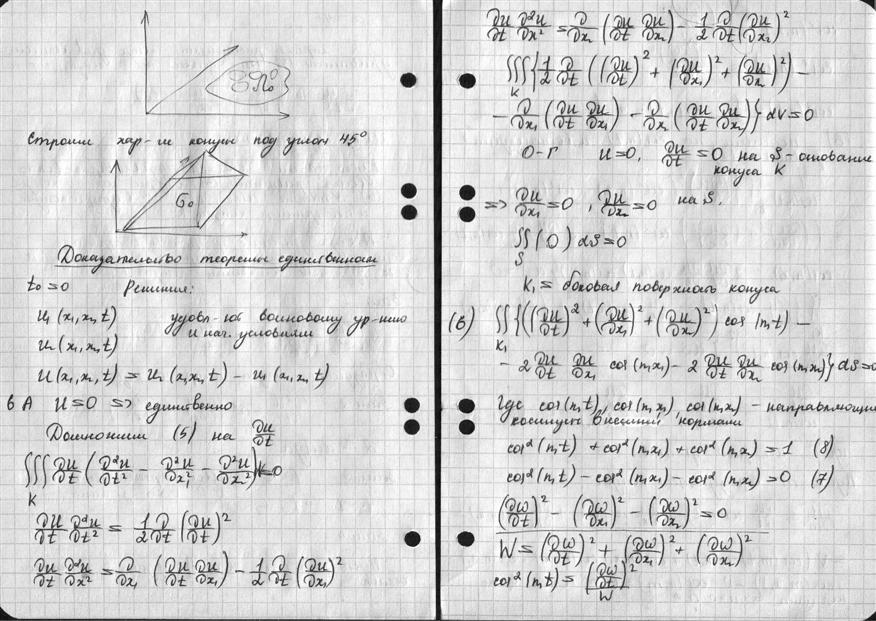 Строим хар-ие конусы под углом 45°
G₀
Доказательство теоремы единственности
t₀ = 0 Решения:
u₁(x₁,x₂,t) удовл-ют волновому ур-нию
u₂(x₁,x₂,t) и нач. условиям
u(x₁,x₂,t) = u₂(x₁,x₂,t) − u₁(x₁,x₂,t)
в A u=0 => единственно
Домножим (5) на ∂u/∂t
∭ ∂u/∂t (∂²u/∂t² − ∂²u/∂x₁² − ∂²u/∂x₂²) = 0
K
∂u/∂t ∂²u/∂t² = 1/2 ∂/∂t (∂u/∂t)²
∂u/∂t ∂²u/∂x² = ∂/∂x₁ (∂u/∂t ∂u/∂x₁) − 1/2 ∂/∂t (∂u/∂x₁)²
∂u/∂t ∂²u/∂x² = ∂/∂x₂ (∂u/∂t ∂u/∂x₂) − 1/2 ∂/∂t (∂u/∂x₂)²
∭ {1/2 ∂/∂t ((∂u/∂t)² + (∂u/∂x₁)² + (∂u/∂x₂)²) −
K
− ∂/∂x₁ (∂u/∂t ∂u/∂x₁) − ∂/∂x₂ (∂u/∂t ∂u/∂x₂)} dV = 0
О-Г u=0, ∂u/∂t = 0 на S - основание
конуса K
=> ∂u/∂x₁ = 0, ∂u/∂x₂ = 0 на S.
∬ (0) dS = 0
S
K₁ = боковая поверхность конуса
(6) ∬ {((∂u/∂t)² + (∂u/∂x₁)² + (∂u/∂x₂)²) cos(n,t) −
K₁
− 2 ∂u/∂t ∂u/∂x₁ cos(n,x₁) − 2 ∂u/∂t ∂u/∂x₂ cos(n,x₂)} dS = 0
Где cos(n,t), cos(n,x₁), cos(n,x₂) - направляющие
косинусы внешней нормали
cos²(n,t) + cos²(n,x₁) + cos²(n,x₂) = 1 (8)
cos²(n,t) − cos²(n,x₁) − cos²(n,x₂) = 0 (7)
(∂w/∂t)² − (∂w/∂x₁)² − (∂w/∂x₂)² = 0
W = (∂w/∂t)² + (∂w/∂x₁)² + (∂w/∂x₂)²
cos²(n,t) = (∂w/∂t)²/W